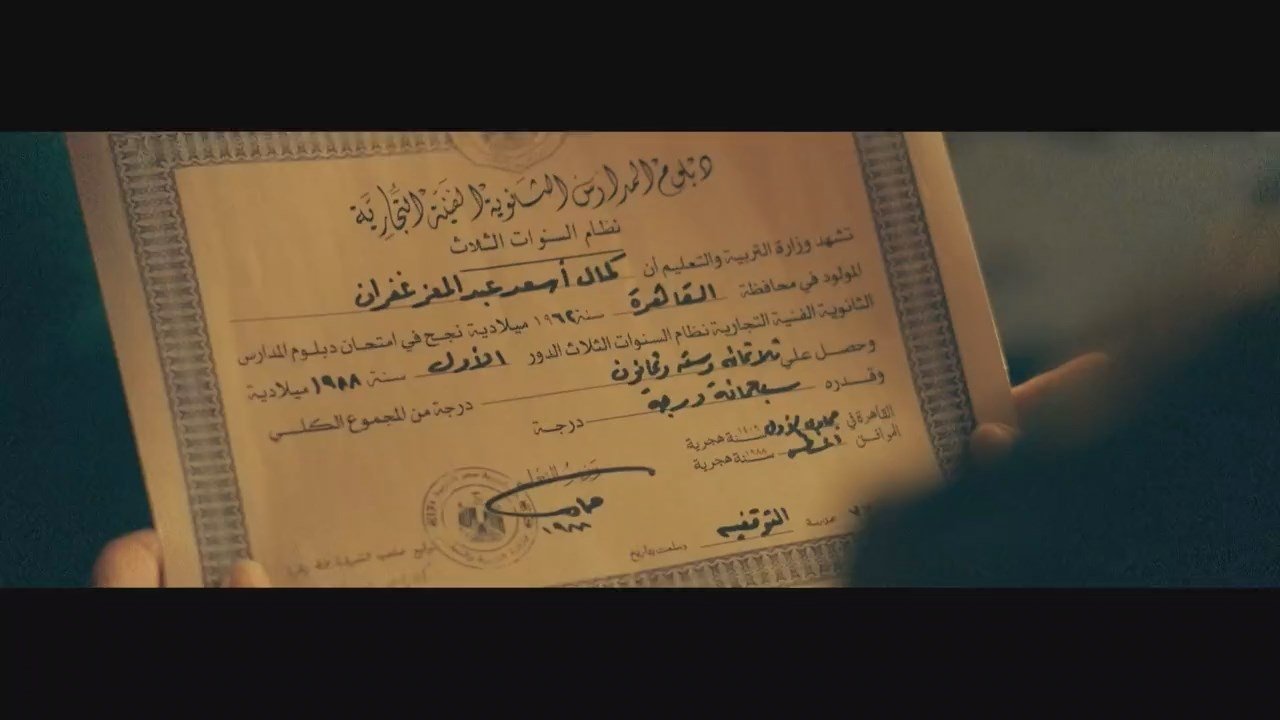 دبلوم المدارس الثانوية الفنية التجارية
نظام السنوات الثلاث
تشهد وزارة التربية والتعليم أن كمال أسعد عبد المعز غفران
المولود في محافظة القاهرة سنة ١٩٦٢ ميلادية نجح في امتحان دبلوم المدارس
الثانوية الفنية التجارية نظام السنوات الثلاث الدور الأول سنة ١٩٨٨ ميلادية
وحصل على ثلاثمائه وسته وثمانون درجة من المجموع الكلي
وقدره سبعمائة درجة درجة
القاهرة في جمادى الأول سنة هجرية
الموافق سنة ١٩٨٨ هجرية
١٩٨٨
مدرسة التوفقيه وسلمت بتاريخ